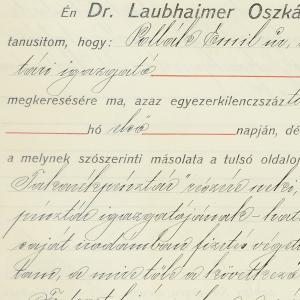 Én Dr. Laubhajmer Oszká
tanusitom, hogy: Pollák Emil úr,
tári igazgató
megkeresésére ma, azaz egyezerkilenczszáz
hó első napján, dé
a melynek szószerinti másolata a tulsó oldaloj
Takarékpénztár" részére neki,
pénztár igazgatójának
saját irodámban fizetés végett
tam, a mire tőle a következő